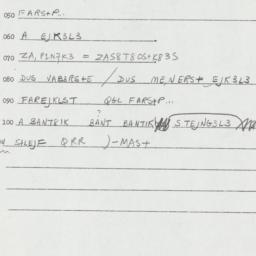 050 FARS+P...
060 A EJK3L3
070 ZA,P1N7K3 = ZAS8T8OS+K83S
080 DUS VABARG+E / DUS ME,NERS+ EJK3L3
090 FAREJKLST QGL FARS+P...
100 A BANT8IK BANT BANTIK S.TEJNG3L3
SHLEJF QRR )-MAS+